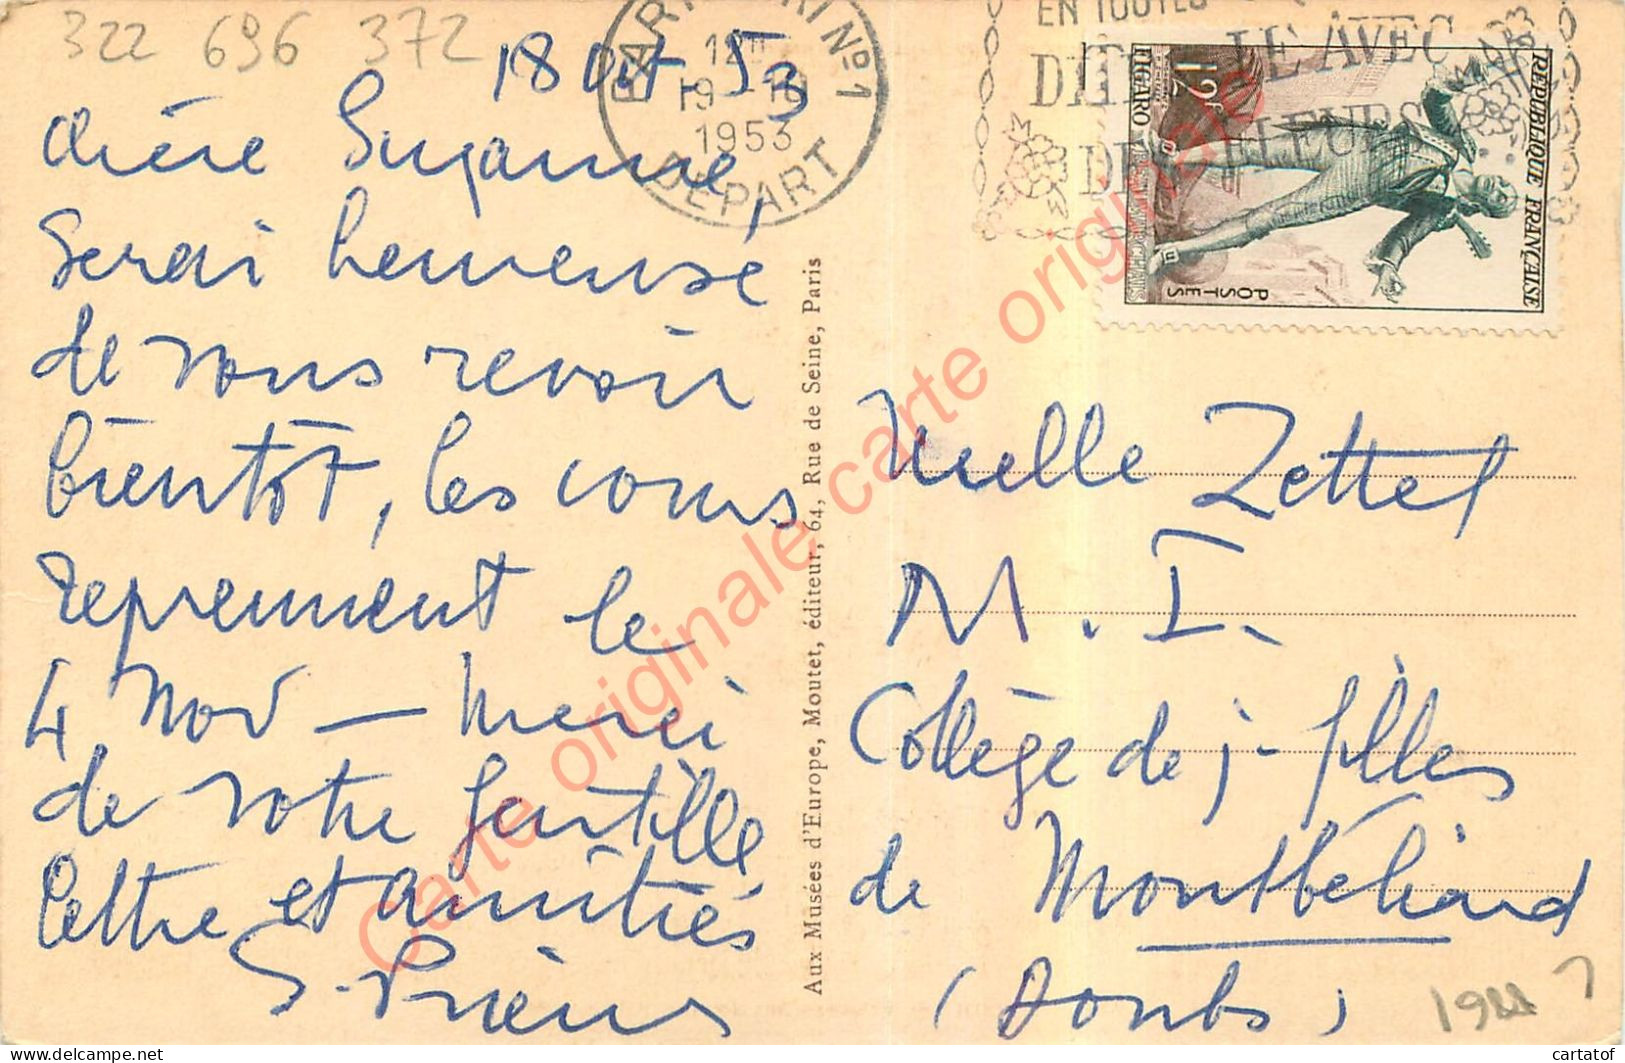 322 696 372
18 Oct. 53
chère Suzanne,
Serai heureuse
de vous revoir
bientôt, les cours
reprennent le
4 Nov — Merci
de votre gentille
lettre et amitiés
12H
19 - 10
1953
DÉPART
N°1
EN TOUTES
LE AVEC
DES FLEURS
REPUBLIQUE FRANÇAISE
FIGARO
12F
POSTES
Aux Musées d'Europe, Moutet, éditeur, 64, Rue de Seine, Paris
Melle Zettel
M. I.
Collège de j. filles
de Montbéliard
(Doubs)
Carte originale carte originale carte originale
cartatof